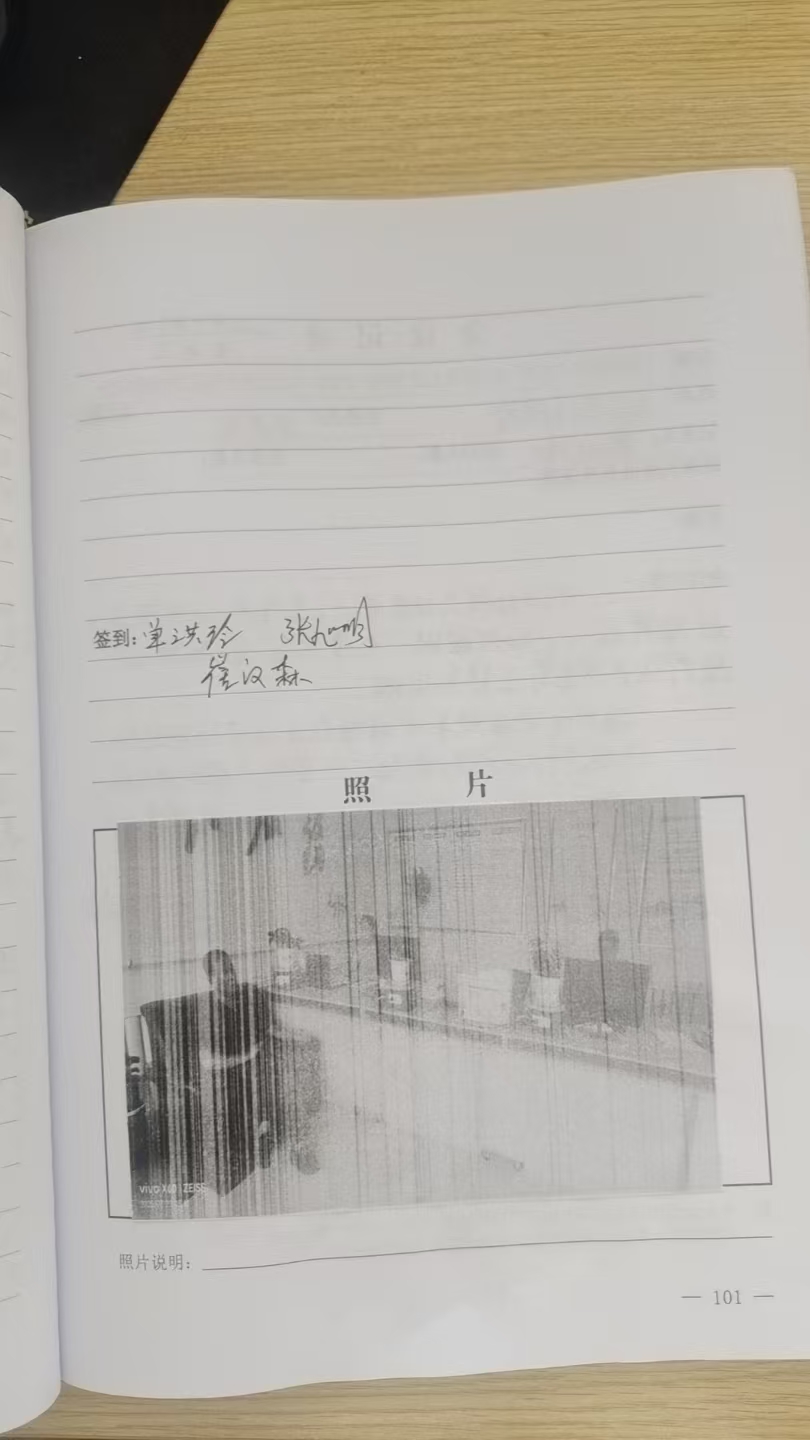 签到：单洪玲 张旭明
崔汉森
照 片
vivo X60 ZEISS
照片说明：
— 101 —